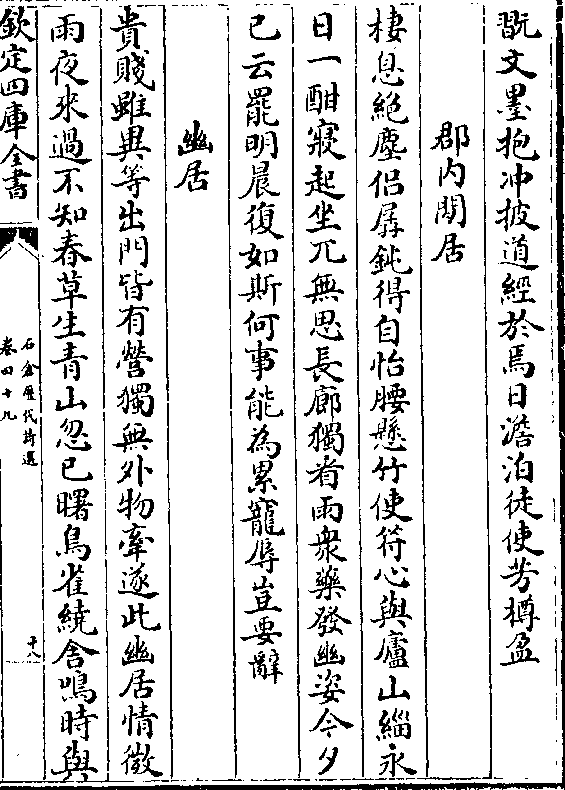 翫文墨抱冲披道經於焉日澹泊徒使芳樽盈
郡内閒居
棲息絶塵侣孱鈍得自怡腰懸竹使符心與廬山緇永
日一酣寢起坐兀無思長廊獨看雨衆藥發幽姿今夕
已云罷明晨復如斯何事能為累寵辱豈要辭
幽居
貴賤雖異等出門皆有營獨無外物牽遂此幽居情微
雨夜来過不知春草生青山忽已曙鳥雀繞舍鳴時與
欽定四庫全書
石倉歷代詩選
卷四十九
十八